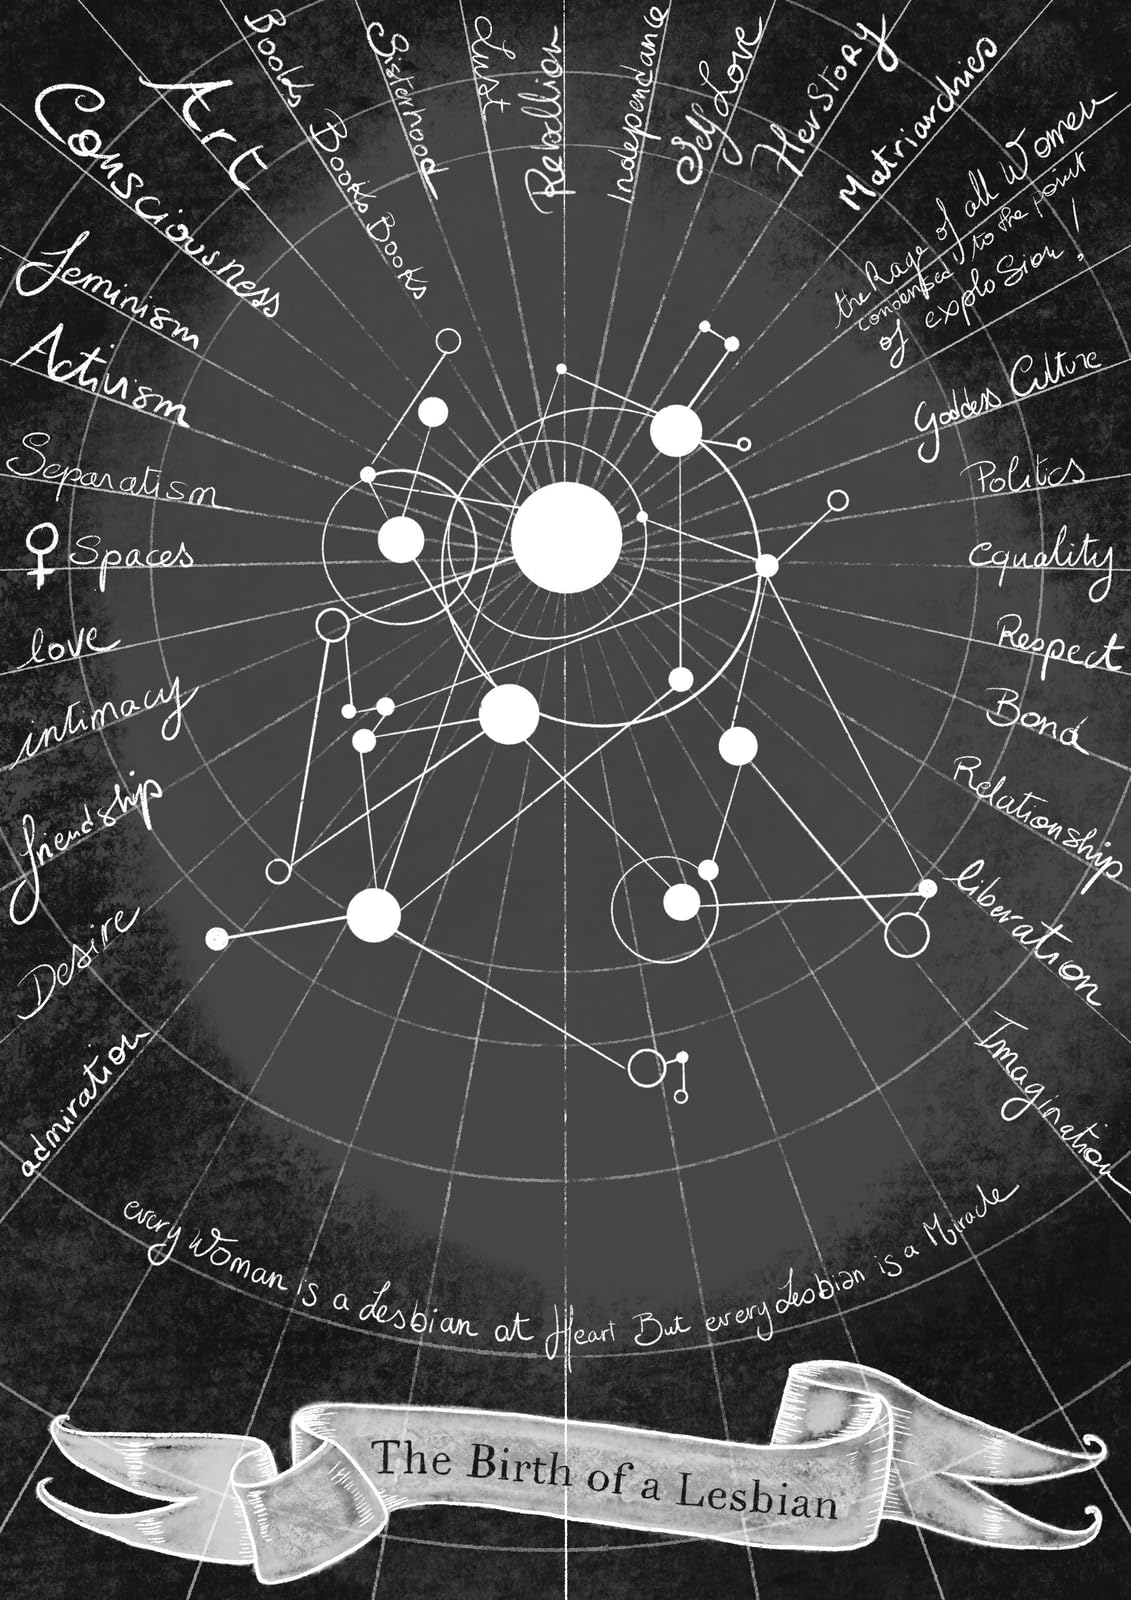 admiration
Desire
friendship
intimacy
love
♀ Spaces
Separatism
Activism
feminism
Consciousness
Art
Books Books Books
Sisterhood
Lust
Rebellion
Independance
Self Love
HerStory
Matriarchies
the Rage of all Women
condensed to the point
of explosion !
Goddess Culture
Politics
equality
Respect
Bond
Relationship
liberation
Imagination
every Woman is a Lesbian at Heart But every Lesbian is a Miracle
The Birth of a Lesbian